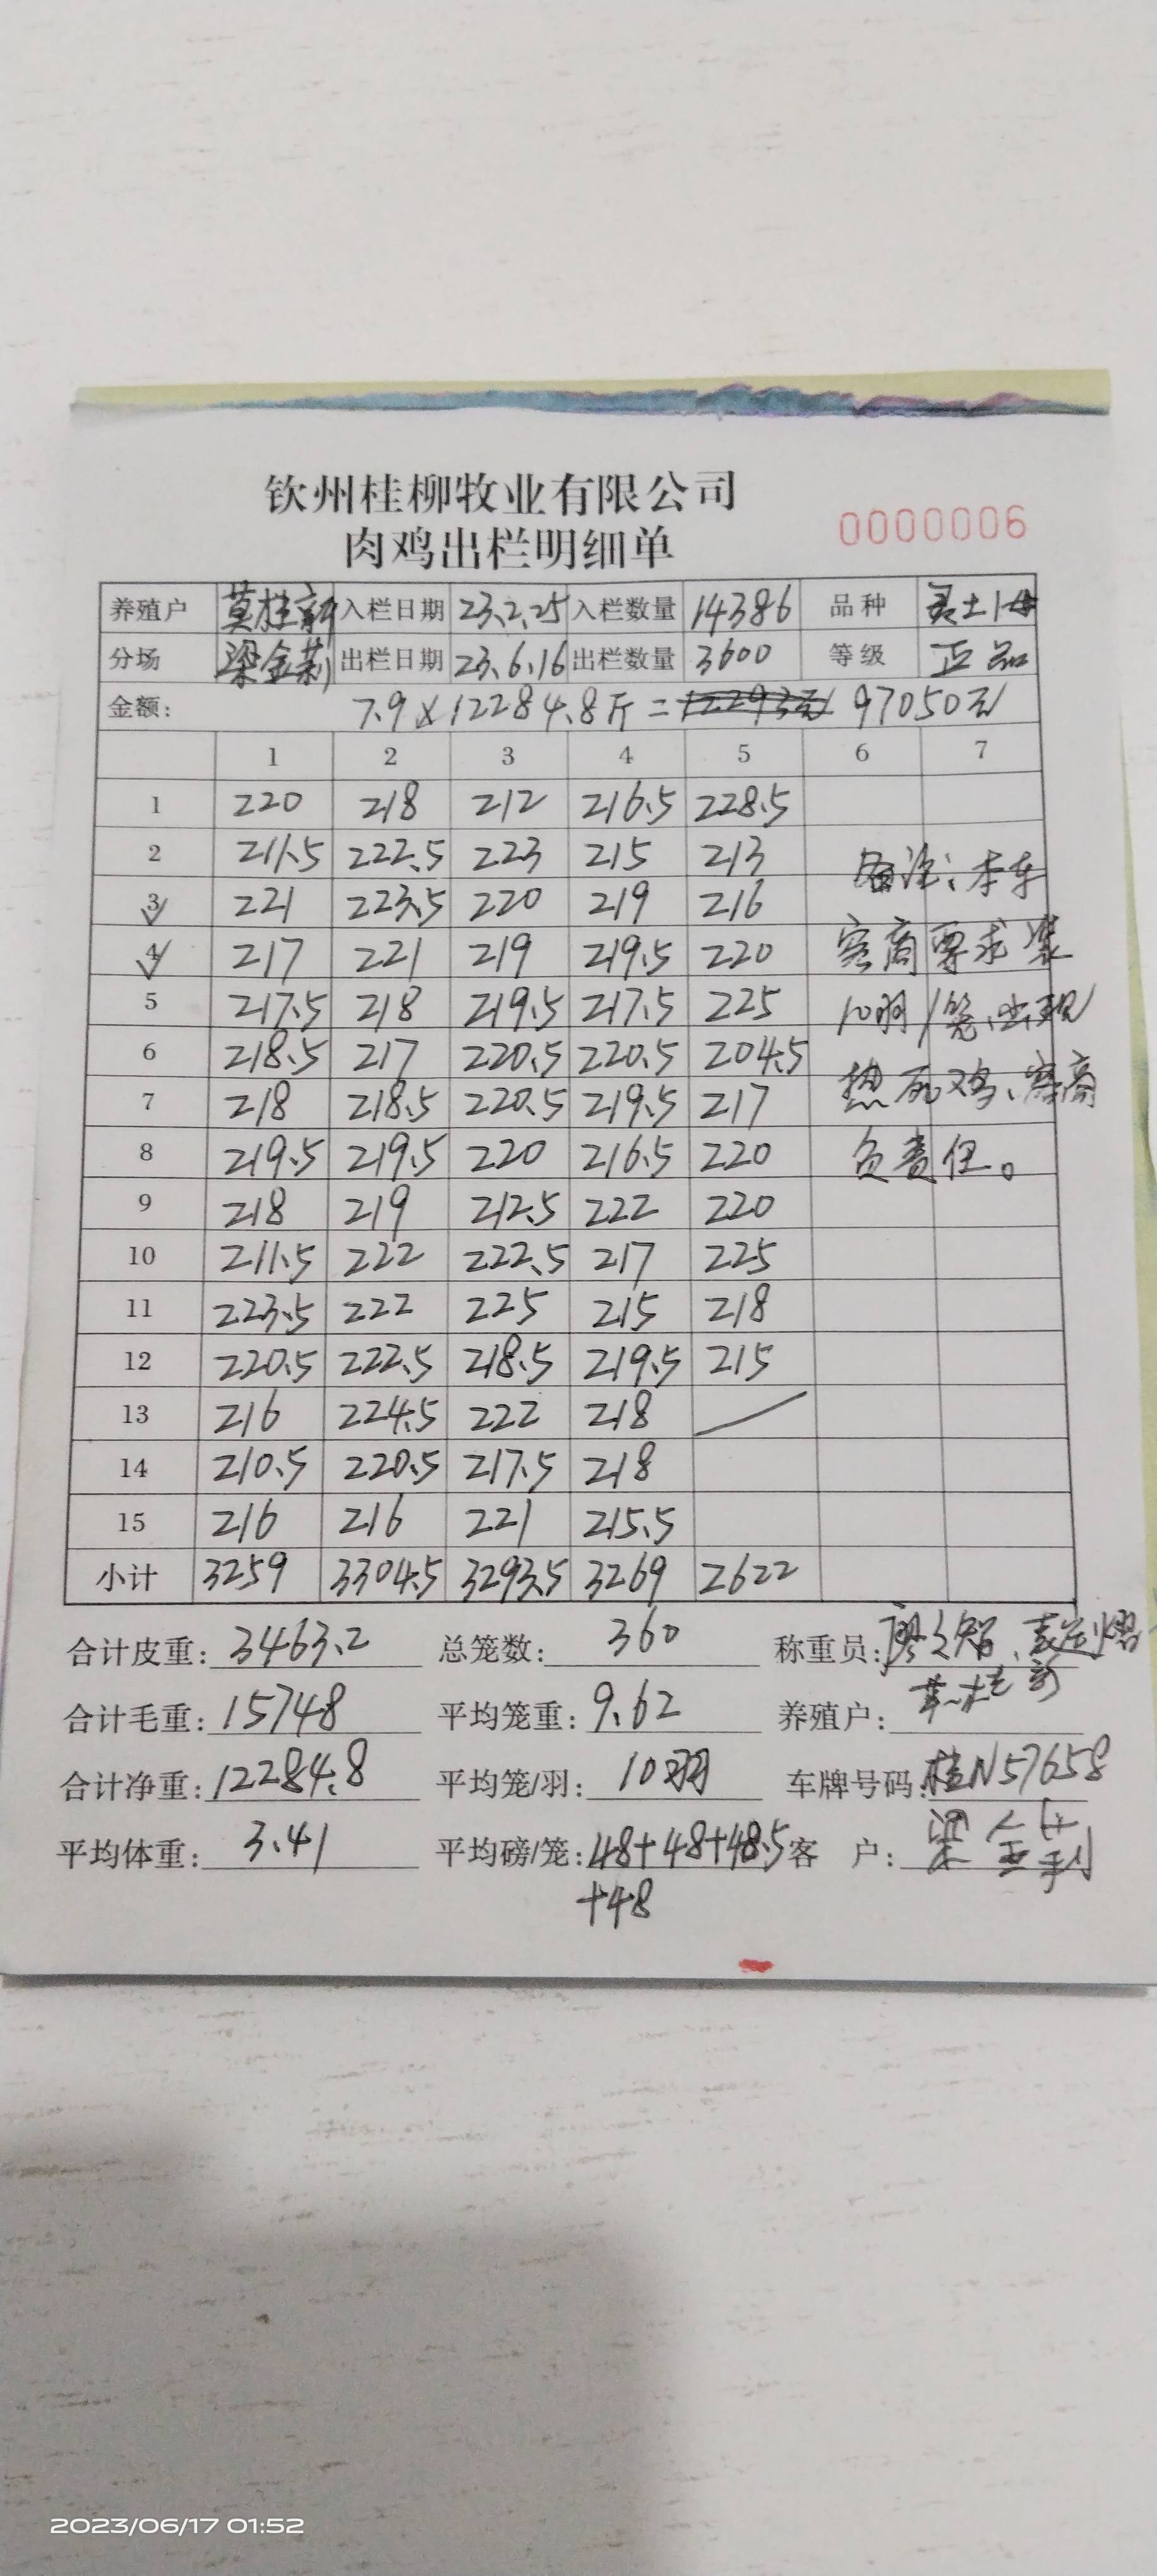 钦州桂柳牧业有限公司
肉鸡出栏明细单
0000006
养殖户 莫桂新 入栏日期 23.2.25 入栏数量 14386 品种 灵土1母
分场 梁金莉 出栏日期 23.6.16 出栏数量 3600 等级 正品
金额: 7.9×12284.8斤= 97050元
1 2 3 4 5 6 7
1 220 218 212 216.5 228.5
2 211.5 222.5 223 215 213 备注:本车
3 221 223.5 220 219 216
4 217 221 219 219.5 220 客商要求装
5 217.5 218 219.5 217.5 225 10羽/笼、出现
6 218.5 217 220.5 220.5 204.5
7 218 218.5 220.5 219.5 217 热死鸡、客商
8 219.5 219.5 220 216.5 220 负责任。
9 218 219 212.5 222 220
10 211.5 222 222.5 217 225
11 223.5 222 225 215 218
12 220.5 222.5 218.5 219.5 215
13 216 224.5 222 218
14 210.5 220.5 217.5 218
15 216 216 221 215.5
小计 3259 3304.5 3293.5 3269 2622
合计皮重: 3463.2 总笼数: 360 称重员:
合计毛重: 15748 平均笼重: 9.62 养殖户: 莫桂新
合计净重: 12284.8 平均笼/羽: 10羽 车牌号码: 桂N57658
平均体重: 3.41 平均磅/笼: 48+48+48.5 客 户: 梁金莉
+48
2023/06/17 01:52